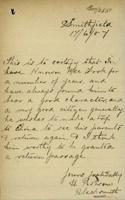 Smithfield
17/6/07
This is to certify that I
have known Wee Sock for
a number of years, and
have always found him to
bear a good character, and
a very good citizen generally,
he wishes to make a trip
to China to see his parents
& return again, I think
him worthy to be granted
a return passage
Yours faithfully
H.
Blacksmith